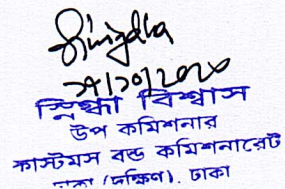 স্নিগ্ধা বিশ্বাস
উপ কমিশনার
কাস্টমস বন্ড কমিশনারেট
ঢাকা (দক্ষিণ), ঢাকা